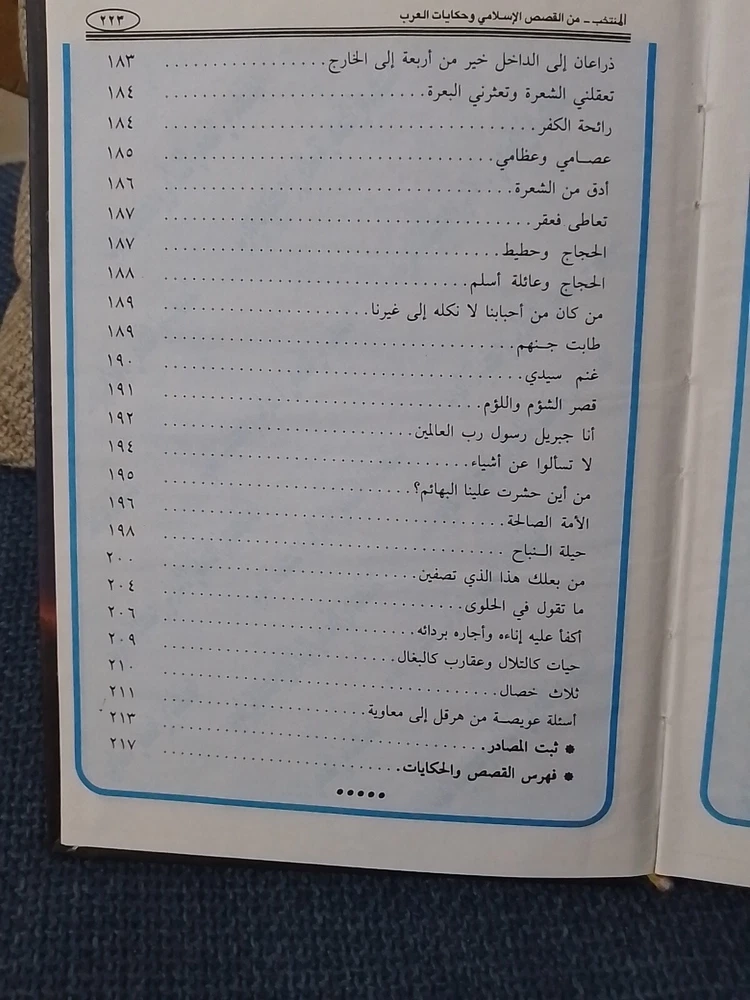 المنتخب ــ من القصص الإسلامي وحكايات العرب ٢٢٣
ذراعان إلى الداخل خير من أربعة إلى الخارج ................ ١٨٣
تعقلني الشعرة وتعثرني البعرة ................ ١٨٤
رائحة الكفر ................ ١٨٤
عصامي وعظامي ................ ١٨٥
أدق من الشعرة ................ ١٨٦
تعاطى فعقر ................ ١٨٧
الحجاج وحطيط ................ ١٨٧
الحجاج وعائلة أسلم ................ ١٨٨
من كان من أحبابنا لا نكله إلى غيرنا ................ ١٨٩
طابت جنهم ................ ١٨٩
غنم سيدي ................ ١٩٠
قصر الشؤم واللؤم ................ ١٩١
أنا جبريل رسول رب العالمين ................ ١٩٢
لا تسألوا عن أشياء ................ ١٩٤
من أين حشرت علينا البهائم؟ ................ ١٩٥
الأمة الصالحة ................ ١٩٦
حيلة النباح ................ ١٩٨
من بعلك هذا الذي تصفين ................ ٢٠٠
ما تقول في الحلوى ................ ٢٠٤
أكفأ عليه إناءه وأجاره بردائه ................ ٢٠٦
حيات كالتلال وعقارب كالبغال ................ ٢٠٩
ثلاث خصال ................ ٢١٠
أسئلة عويصة من هرقل إلى معاوية ................ ٢١١
* ثبت المصادر ................ ٢١٣
* فهرس القصص والحكايات ................ ٢١٧